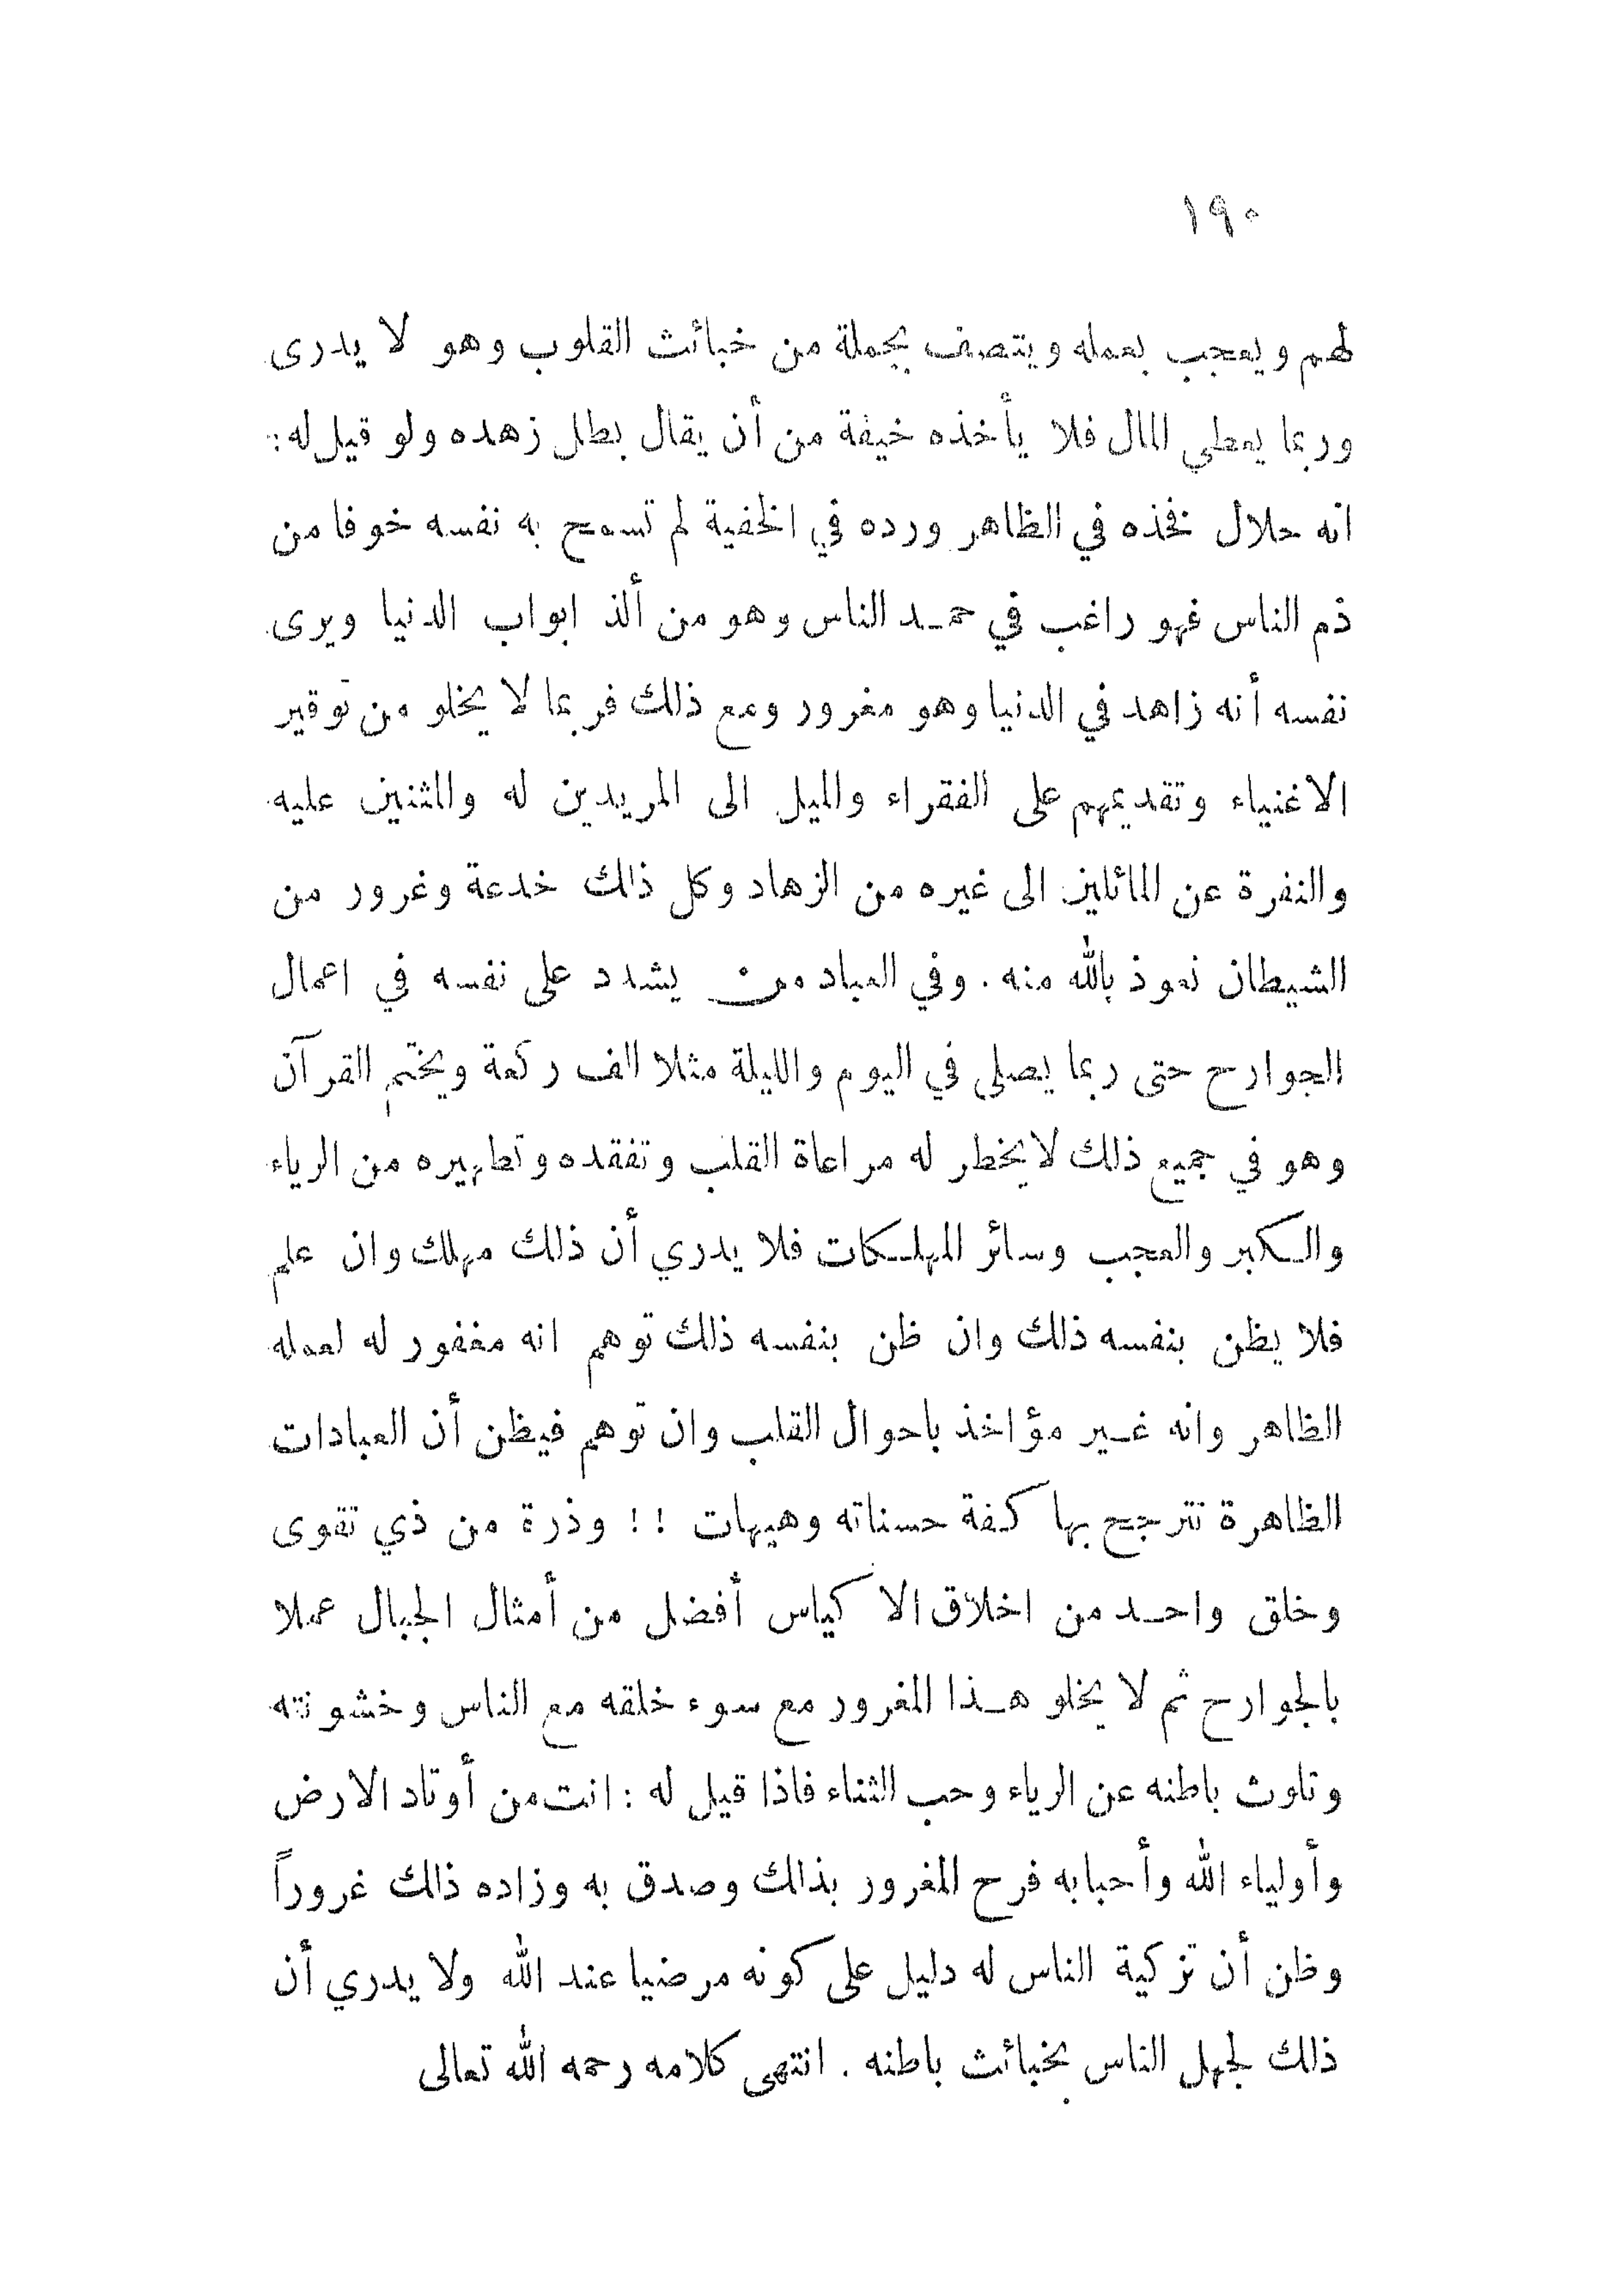 ١٩٠
لهم ويعجب بعمله ويتصف بجملة من خبائث القلوب وهو لا يدرى
وربما يعطي المال فلا يأخذه خيفة من أن يقال بطل زهده ولو قيل له:
انه حلال فخذه في الظاهر ورده في الخفية لم تسمح به نفسه خوفا من
ذم الناس فهو راغب في حمد الناس وهو من ألذ ابواب الدنيا ويرى
نفسه أنه زاهد في الدنيا وهو مغرور ومع ذلك فربما لا يخلو من توقير
الاغنياء وتقديمهم على الفقراء والميل الى المريدين له والمثنين عليه
والنفرة عن المائلين الى غيره من الزهاد وكل ذلك خدعة وغرور من
الشيطان نعوذ بالله منه . وفي العباد من يشدد على نفسه في اعمال
الجوارح حتى ربما يصلى في اليوم والليلة مثلا الف ركعة ويختم القرآن
وهو في جميع ذلك لا يخطر له مراعاة القلب وتفقده وتطهيره من الرياء
والكبر والعجب وسائر المهلكات فلا يدري أن ذلك مهلك وان علم
فلا يظن بنفسه ذلك وان ظن بنفسه ذلك توهم انه مغفور له لعمله
الظاهر وانه غير مؤاخذ باحوال القلب وان توهم فيظن أن العبادات
الظاهرة تترجح بها كفة حسناته وهيهات !! وذرة من ذي تقوى
وخلق واحد من اخلاق الاكياس أفضل من أمثال الجبال عملا
بالجوارح ثم لا يخلو هذا المغرور مع سوء خلقه مع الناس وخشونته
وتلوث باطنه عن الرياء وحب الثناء فاذا قيل له : انت من أوتاد الارض
وأولياء الله وأحبابه فرح المغرور بذلك وصدق به وزاده ذلك غروراً
وظن أن تزكية الناس له دليل على كونه مرضيا عند الله ولا يدري أن
ذلك لجهل الناس بخبائث باطنه . انتهى كلامه رحمه الله تعالى